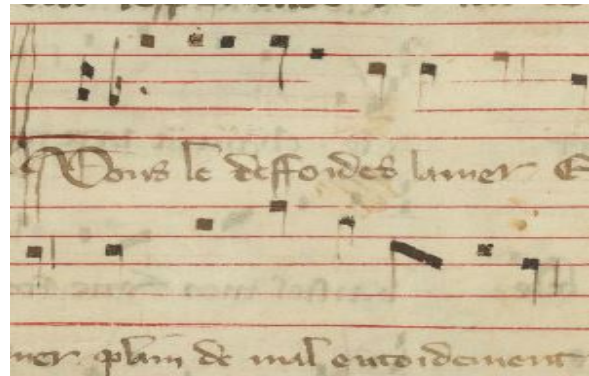 Vous le deffondes lamer E
mer plain de mal entondement